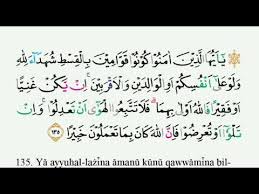 يٰٓاَيُّهَا الَّذِيْنَ اٰمَنُوْا كُوْنُوْا قَوَّامِيْنَ بِالْقِسْطِ شُهَدَاۤءَ لِلّٰهِ
وَلَوْ عَلٰٓى اَنْفُسِكُمْ اَوِ الْوَالِدَيْنِ وَالْاَقْرَبِيْنَ ۚ اِنْ يَّكُنْ غَنِيًّا
اَوْ فَقِيْرًا فَاللّٰهُ اَوْلٰى بِهِمَاۗ فَلَا تَتَّبِعُوا الْهَوٰٓى اَنْ تَعْدِلُوْا ۚ وَاِنْ
تَلْوٗٓا اَوْ تُعْرِضُوْا فَاِنَّ اللّٰهَ كَانَ بِمَا تَعْمَلُوْنَ خَبِيْرًا ١٣٥
135. Yā ayyuhal-lażīna āmanū kūnū qawwāmīna bil-